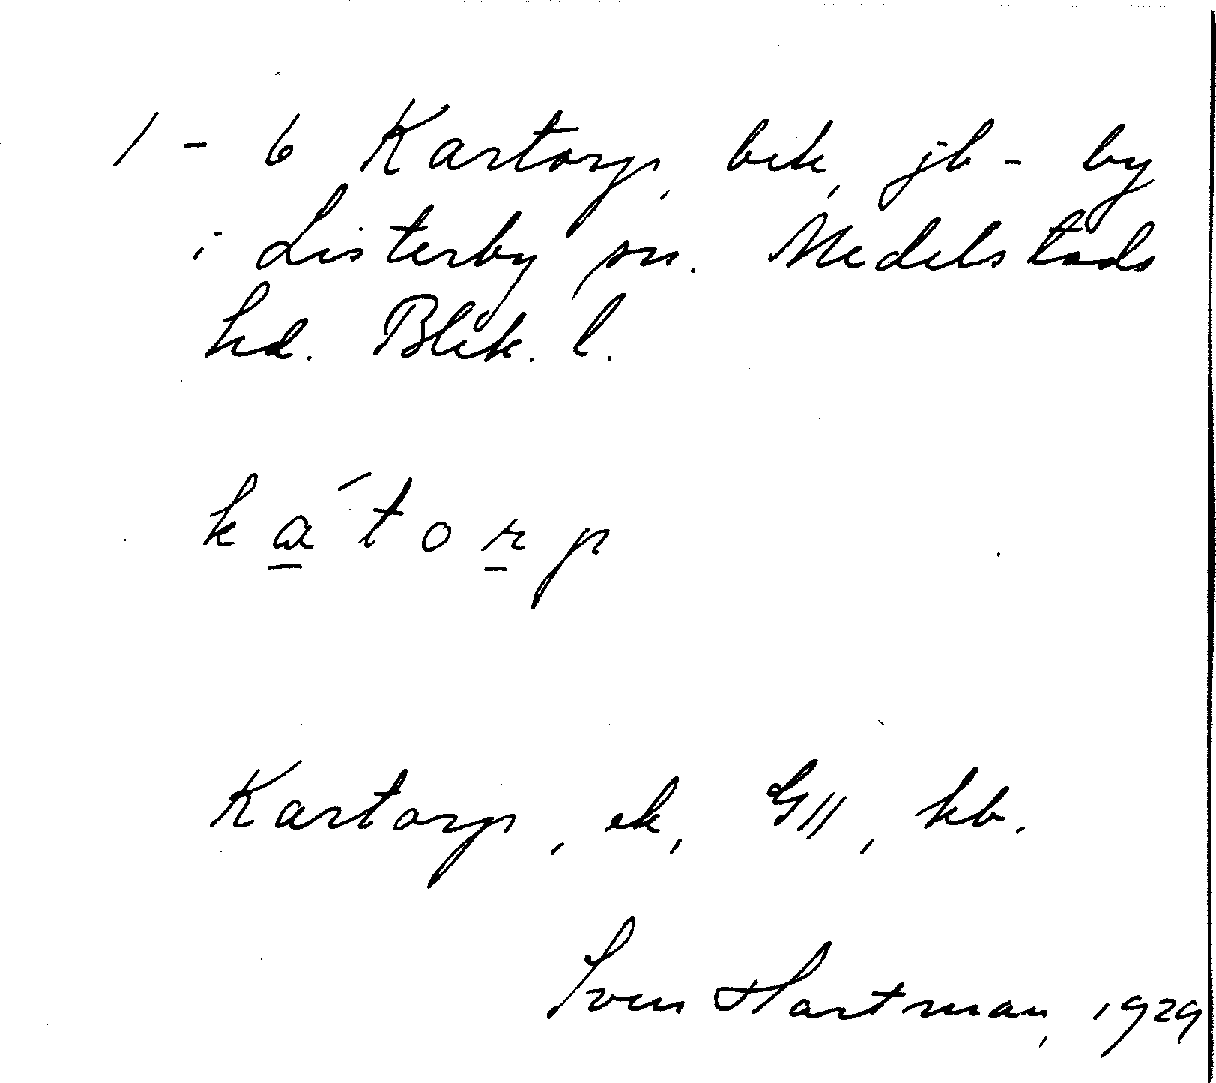 1 - 6 Kartorp, bek, jb - by
i Listerby sn. Medelstads
hd. Blek. l.
ka´torp
Kartorp, ek, GII, kb.
Sven Hartman, 1929